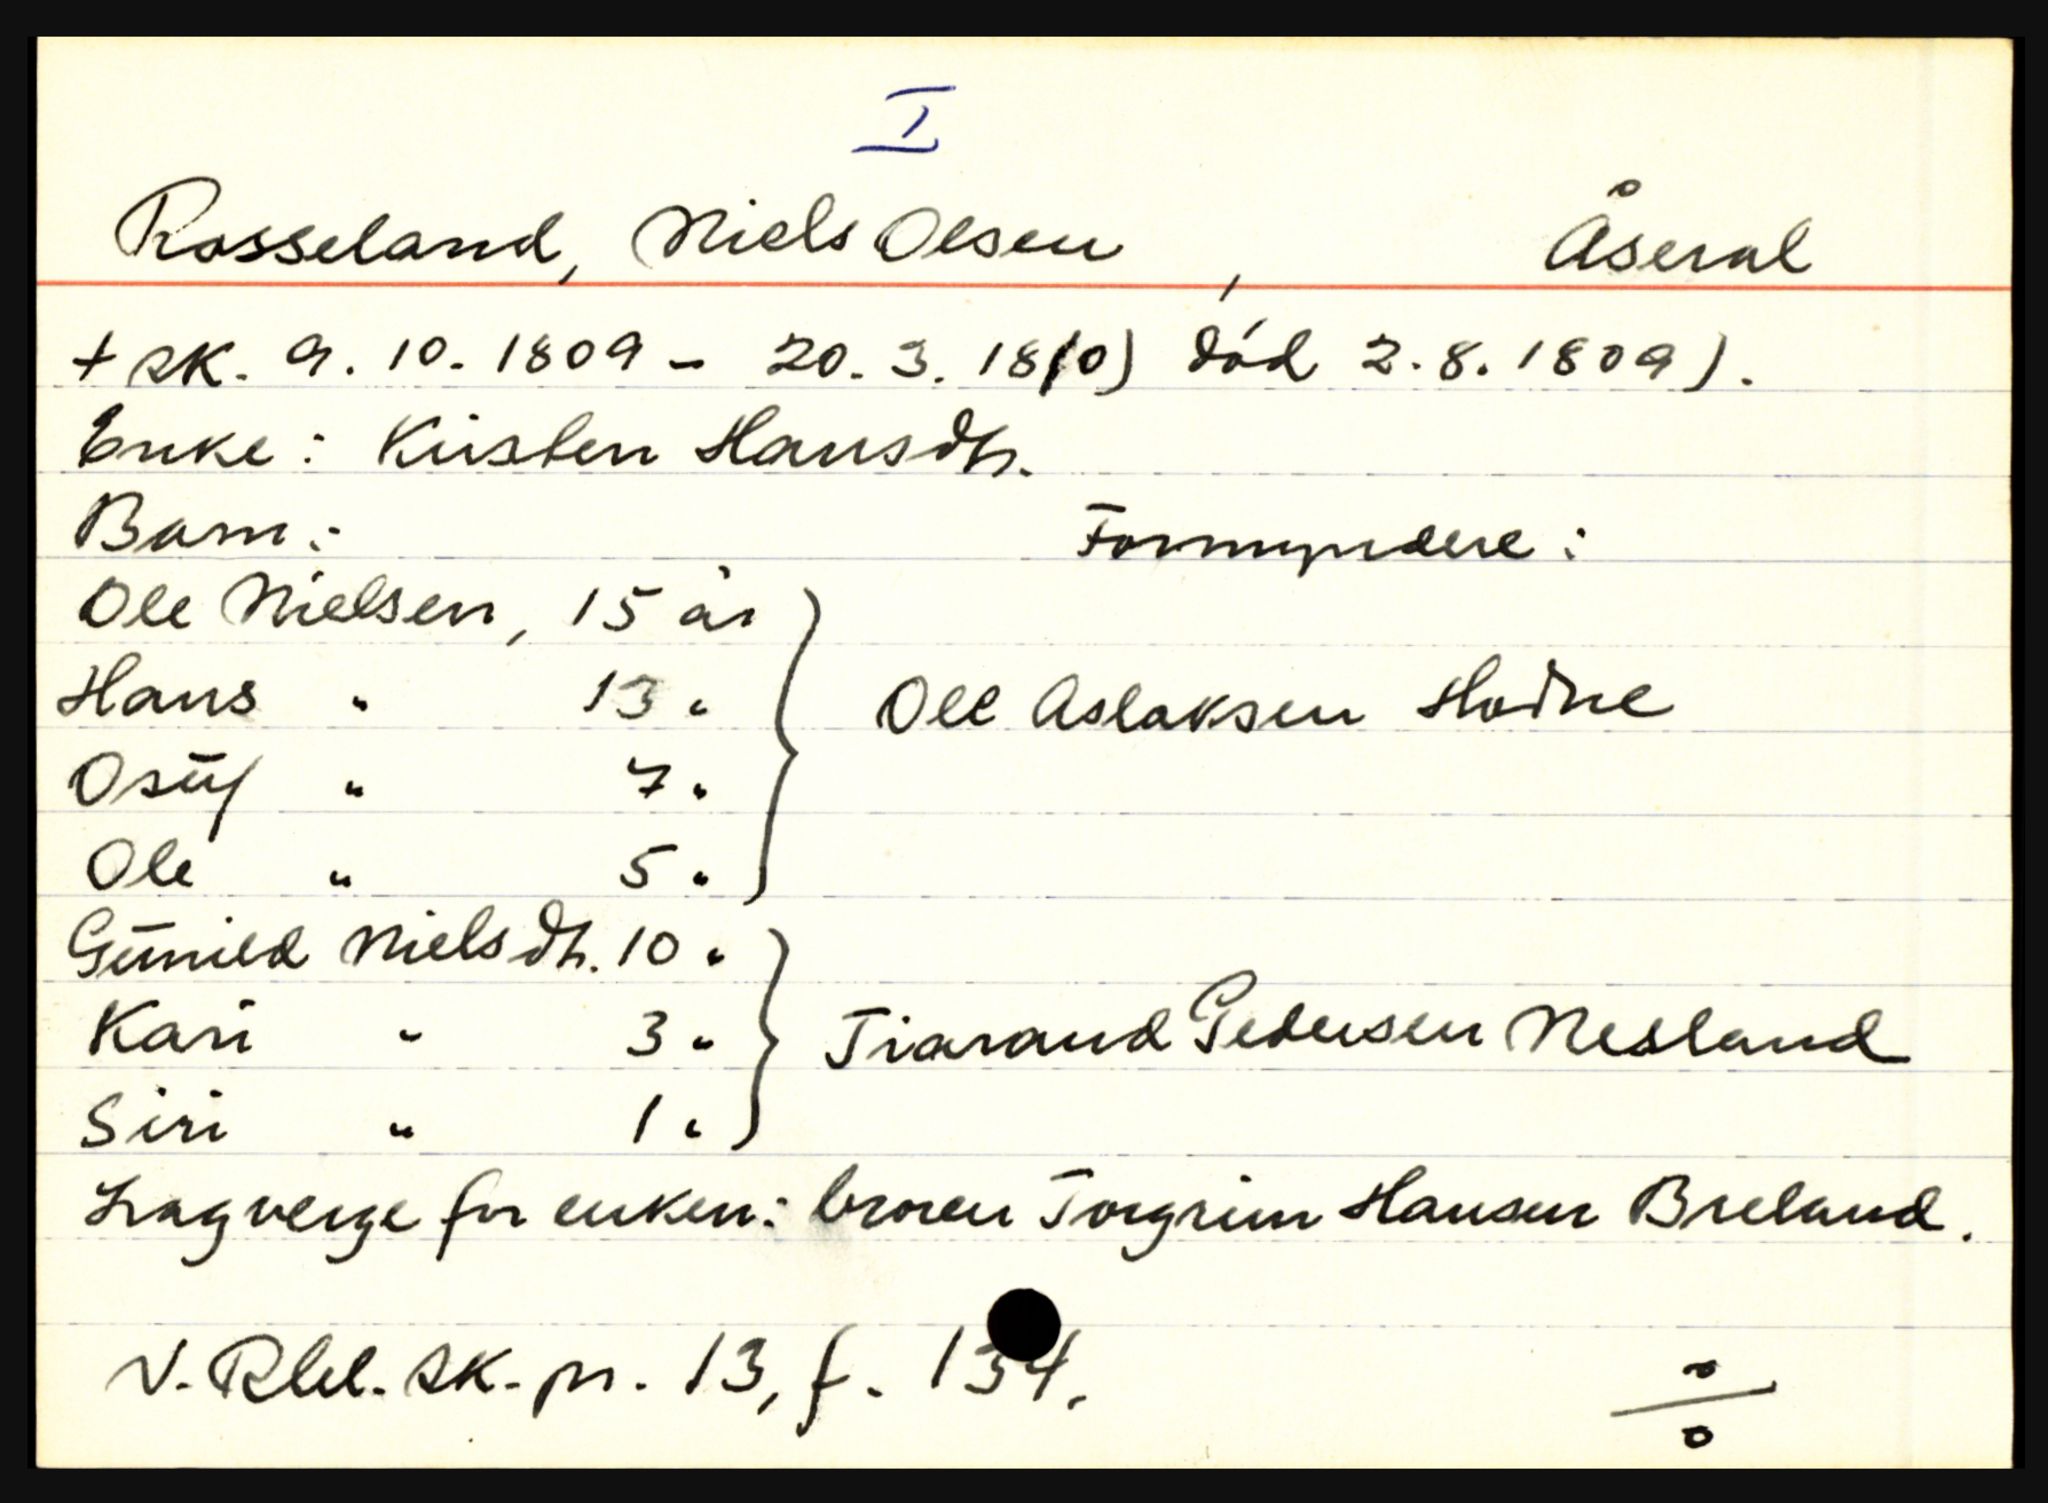 I
Rosseland, Niels Olsen, Åseral
+ sk. 9.10.1809 - 20.3.1810) død 2.8.1809).
Enke: Kirsten Hansdtr.
Barn: Formyndere:
Ole Nielsen, 15 år
Hans " 13 " Ole Aslaksen Hodne
Osúf " 7 "
Ole " 5 "
Gunild Nielsdtr. 10 "
Kari " 3 " Tiarand Pedersen Nesland
Siri " 1 "
Lagverge for enken: broren Torgrim Hansen Breland.
V. Rbd. sk. pr. 13, f. 134.
o/o